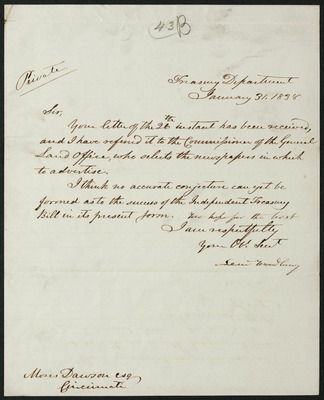 43B
Private
Treasury Department
January 31. 1838
Sir,
Your letter of the 26th instant has been received,
and I have referred it to the Commissioner of the General
Land Office, who selects the newspapers in which
to advertise.
I think no accurate conjecture can yet be
formed as to the success of the Independent Treasury
Bill in its present form. We hope for the best
I am respectfully
Your Ob. Servt
Levi Woodbury
Moses Dawson esq
Cincinnati